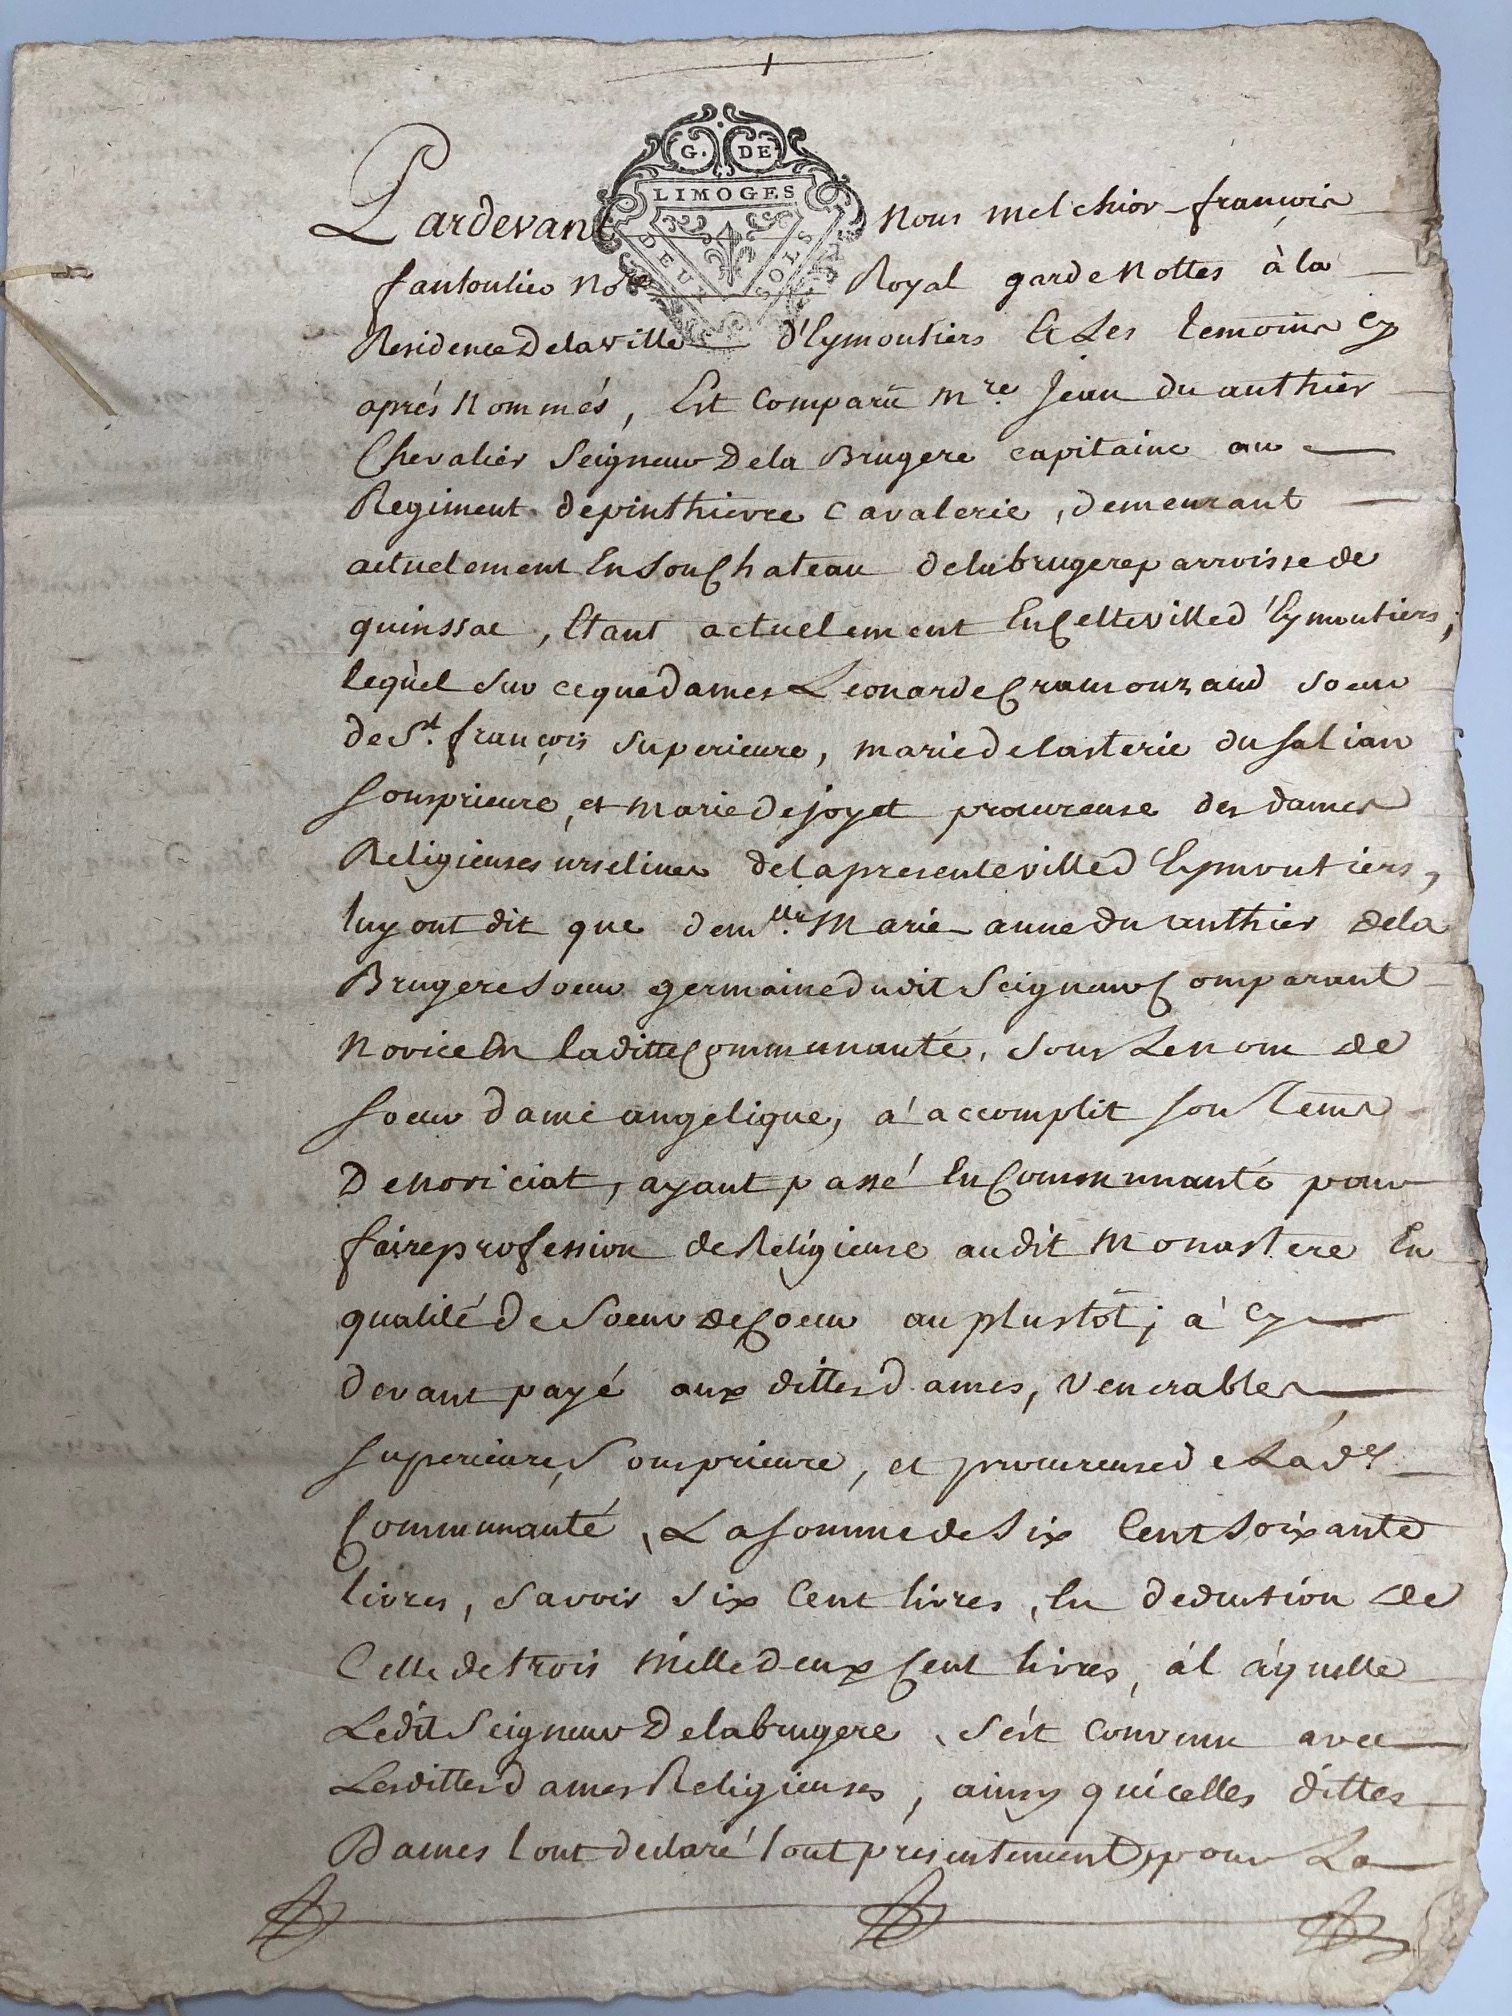 G. DE
LIMOGES
DEUX SOLS
Pardevant Nous melchior françois
fantoulier No.re Royal garde Nottes à la
Residence De la ville d'Eymoutiers Et Les temoins Cy
aprés Nommés, Est Comparü m.re Jean du authier
Chevalier Seigneur De la Brugere capitaine au
Regiment de pinthievre Cavalerie, demeurant
actuelement En Son Chateau de la brugere parroisse de
quinssac, Etant actuelement En Cette ville d'Eymoutiers,
lequel sur ce que dames Leonarde Cramouzaud soeur
de S.t françois Superieure, marie de lasterie du Saliant
Sousprieure, et marie de joyet procureuse des dames
Religieuses urselines de la presente ville d'Eymoutiers,
luy ont dit que dem.lle Marie anne du authier de la
Brugere soeur germaine du dit Seigneur Comparant
Novice En la ditte Communauté, sous Le nom de
soeur dame angelique, a' accomplit son tems
De noviciat, ayant passé En Communauté pour
faire profession de Religieuse au dit Monastere En
qualité de Soeur de Coeur au plustôt; a' Cy
devant payé aux dittes dames, Venerables
superieure, Sousprieure, et procureuse de La d.e
Communauté, La somme de Six Cent soixante
livres, savoir six Cent livres, En deduction de
Celle de trois mille deux Cent livres, à l áquelle
Le dit Seigneur De la brugere, s'ést Convenu avec
Les dittes dames Religieuses, ainsy qu'icelles dittes
Dames lont declaré tout presentement, pour La